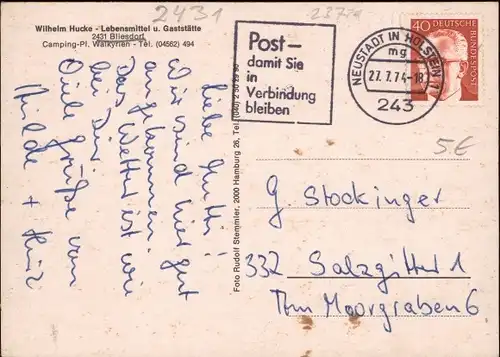 2431
23774
Wilhelm Hucke - Lebensmittel u. Gaststätte
2431 Bliesdorf
Camping-Pl. Walkyrien - Tel. (04562) 494
Post –
damit Sie
in
Verbindung
bleiben
NEUSTADT IN HOLSTEIN 1
mg
27.7.74-18
243
40 DEUTSCHE
BUNDESPOST
Liebe Mutti!
Wir sind hier gut
angekommen.
Das Wetter ist wie
bei Dir.
Viele Grüße von
Hilde + Heinz
Foto Rudolf Stemmler, 2000 Hamburg 26, Tel. (040)
5€
G. Stockinger
332 Salzgitter 1
Am Moorgraben 6